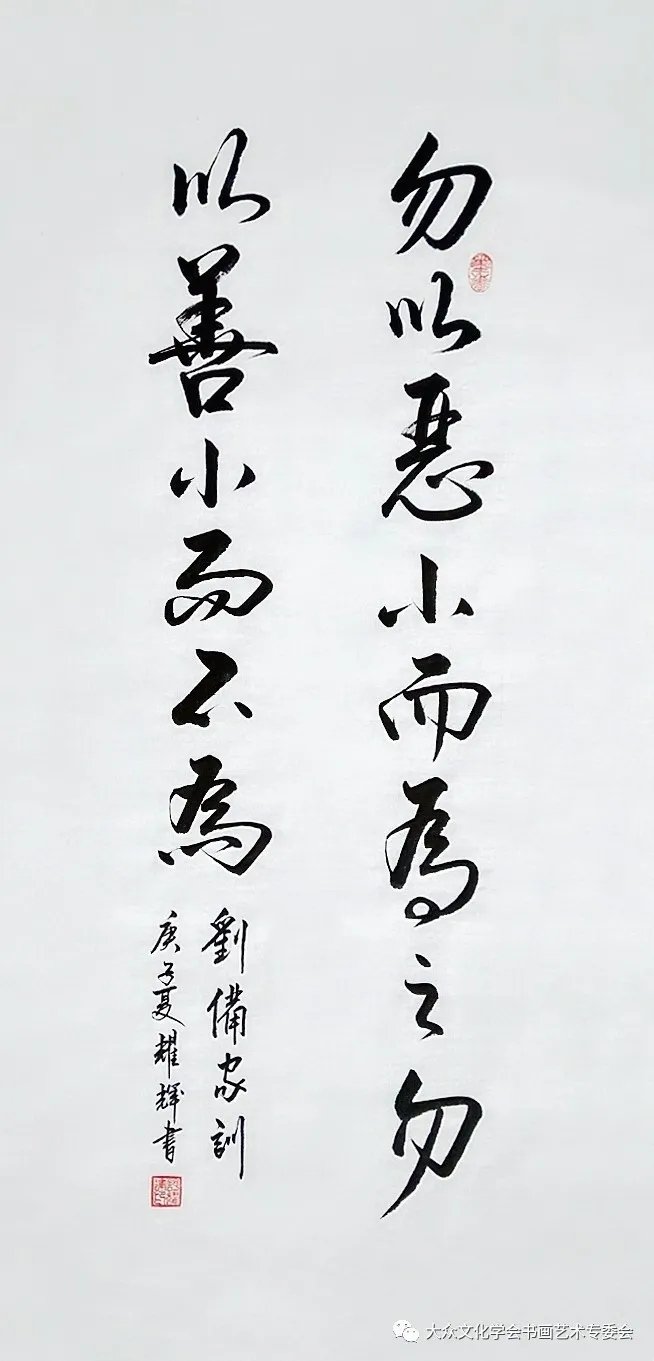 勿以惡小而為之勿
以善小而不為
劉備家訓
庚子夏耀輝書
大众文化学会书画艺术专委会